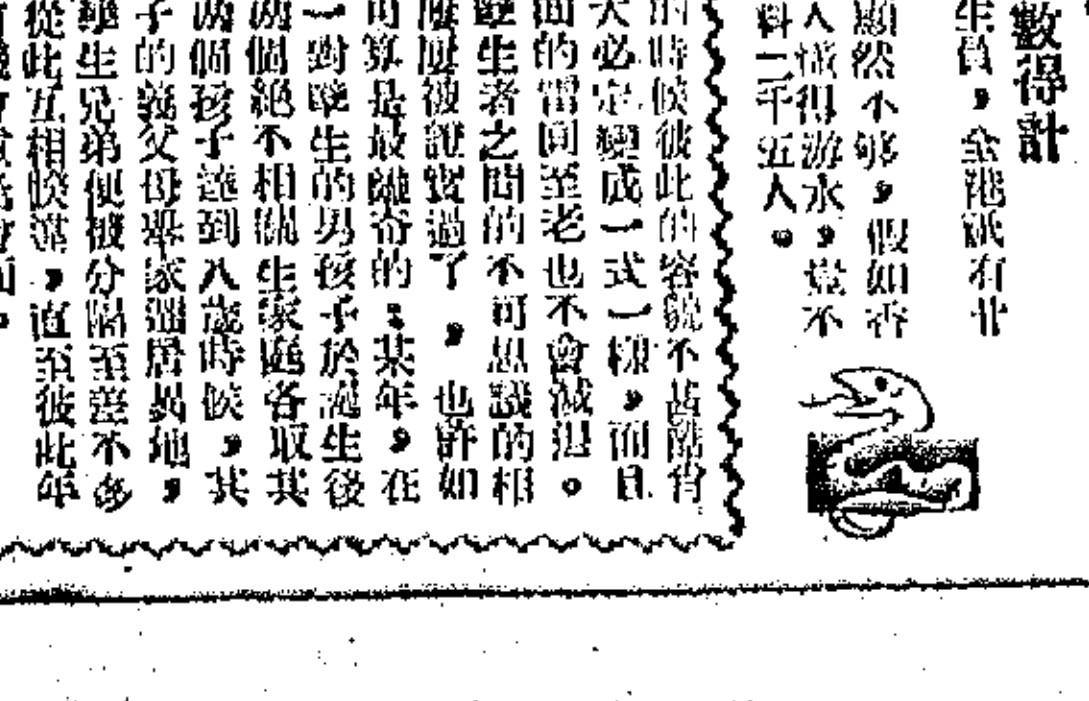 數得計
生員，全港祇有廿
顯然不够，假如香
人懂得游水，當不
料二千五人。
的時候彼此的容貌不甚酷肖
大必定變成一式一樣，而且
面的雷同至老也不會減退。
孿生者之間的不可思議的相
屢屢被證實過了，也許如
可算是最離奇的：某年，在
一對孿生的男孩子於誕生後
兩個絕不相關生家庭各取其
兩個孩子達到八歲時候，其
子的義父母舉家遷居異地，
孿生兄弟便被分隔至差不多
從此互相睽違，直至彼此年